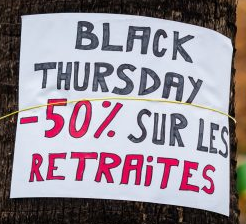 BLACK
THURSDAY
-50% SUR LES
RETRAiTES